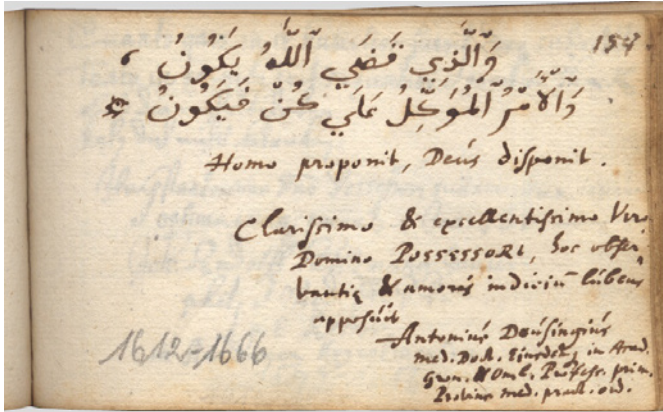 154
وَٱلَّذِي قَضَي ٱللّٰهُ يَكُونُ
وَٱلْأَمْرُ ٱلمُوَكَّلُ عَلَي كُنْ فَيَكُونُ
Homo proponit, Deús disponit.
Clarissimo & excellentissimo Viro
Domino POSSESSORI, hoc obser-
vantię & amoris indiciū lúbens
apposúit
Antoniús Deúsingiús
Med. Doct. Ejusdēq, in Acad.
Gron. & Oml. Profess. prim.
Med. pract. ord.
1612-1666